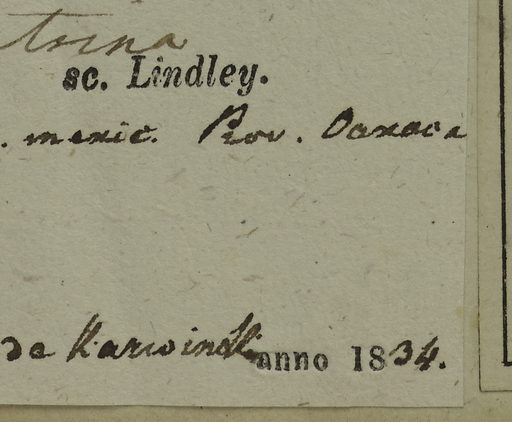 trina
sc. Lindley.
. mexic. Prov. Oaxaca
de Karwinski anno 1834.